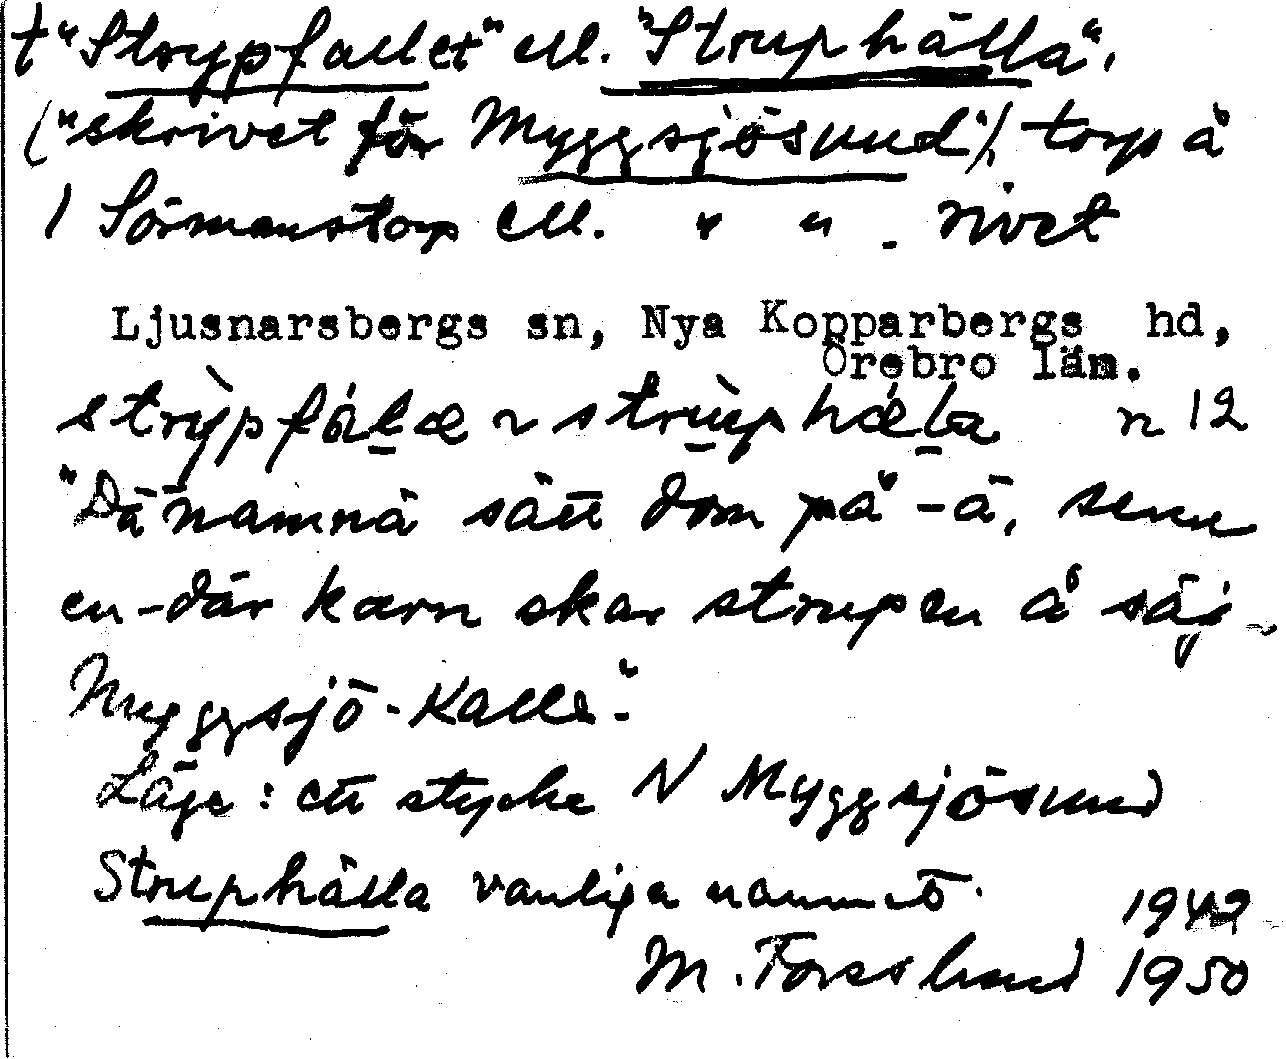 t "Strypfallet" ell. "Struphälla",
("skrivet för Myggsjösund"), torp å
1 Sörmanstorp ell. " " - rivet
Ljusnarsbergs sn, Nya Kopparbergs hd,
Örebro län.
strỳpfálæ ~ strùphæ̀la n 12
"Dä namnä sätt dom på -ä, senn
en-där karn skar strupen å säj -
Myggsjö-Kalle".
Läge: ett stycke N Myggsjösund
Struphälla vanliga namnet.
1942
M. Forsslund 1950